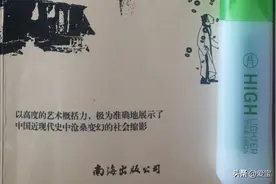 以高度的艺术概括力，极为准确地展示了
中国近现代史中沧桑变幻的社会缩影
南海出版公司
HIGH
头条 @爱宝